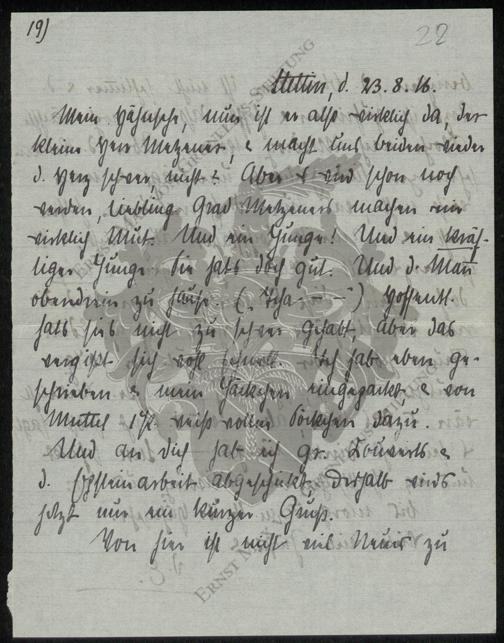 19)
22
Stettin, d. 23.8.16.
Mein Hähnsche, nun ist er also wirklich da, der
kleine Herr Metzener, & macht uns beiden wieder
d. Herz schwer, nicht? Aber wird schon noch
werden, Liebling. Grad Metzeners machen mir
wirklich Mut. Und ein Junge! Und ein kräf-
tiger Junge. Sie hats doch gut. Und d. Mann
obendrein zu Hause. (Tcha - - -) Hoffentl.
hats sie nicht zu schwer gehabt, aber das
vergißt sich wohl schnell. Ich hab eben ge-
schrieben & mein Jäckchen eingepackt, & von
Muttel 1 P. weiße wollne Söckchen dazu.
Und an dich hab ich gr. Kouverts &
d. Epsteinarbeit abgeschickt. Deshalb wirds
jetzt nur ein kurzer Gruß.
Von hier ist nicht viel Neues zu